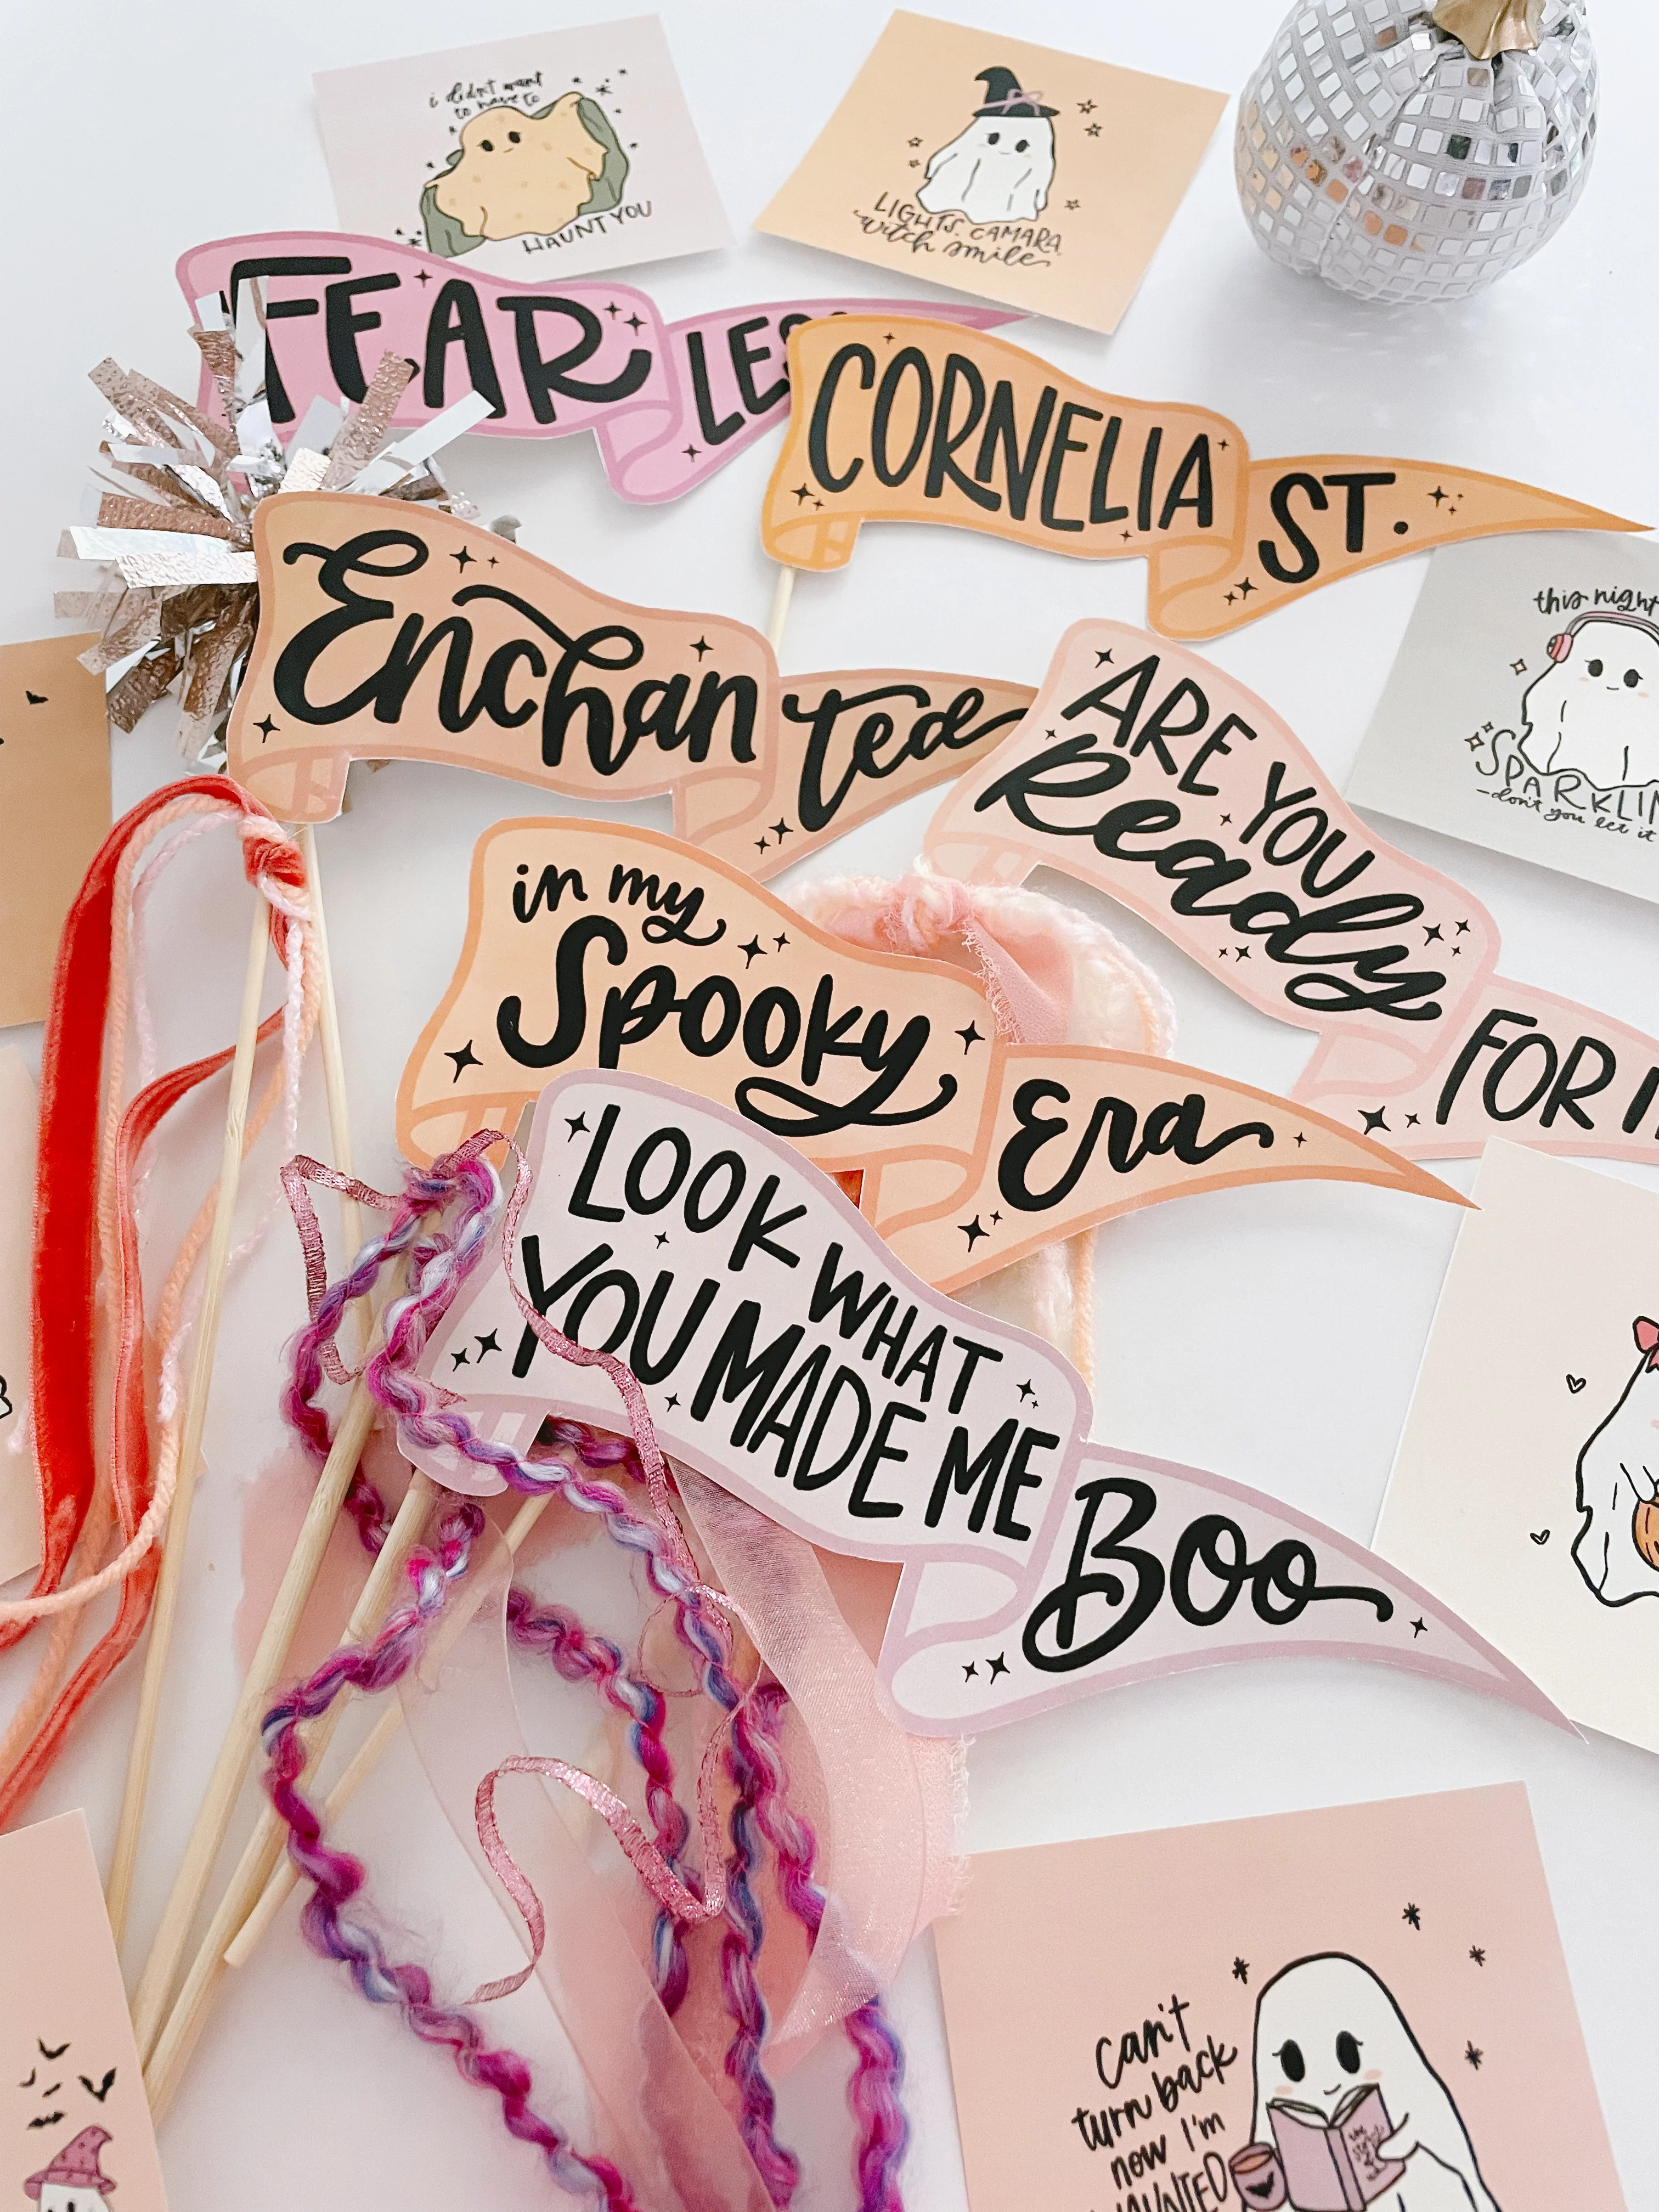 i didn't want
to have to
HAUNT YOU
LIGHTS, CAMARA,
witch smile
FEAR
CORNELIA
ST.
Enchan
ted
ARE YOU
Ready
FOR
this night
in my
Spooky
Era
LOOK WHAT
YOU MADE ME
Boo
-don't you let it
can't
turn back
now I'm
HAUNTED